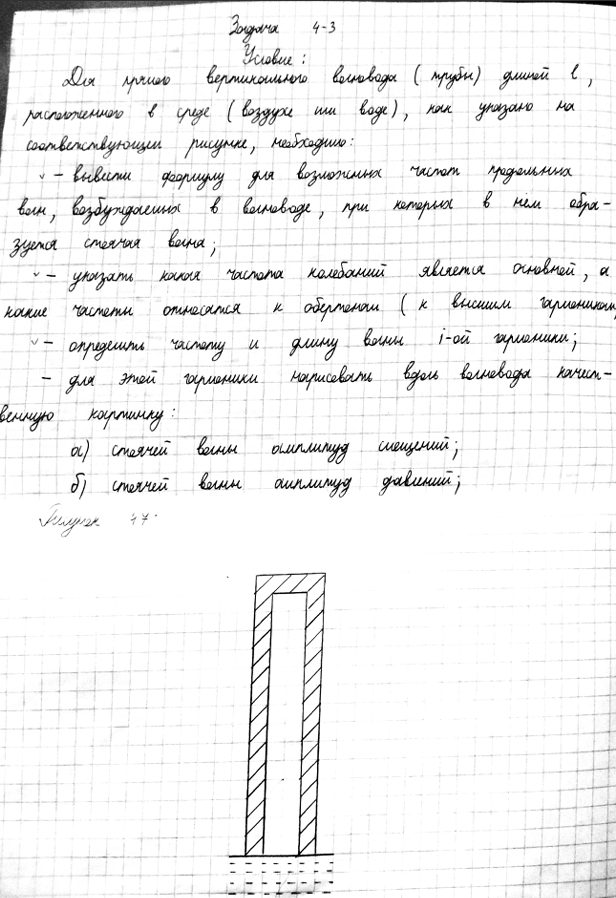 Задача 4-3
Условие:
Для прямого вертикального волновода (трубы) длиной l,
расположенного в среде (воздухе или воде), как указано на
соответствующем рисунке, необходимо:
- вывести формулу для возможных частот продольных
волн, возбуждаемых в волноводе, при которых в нём обра-
зуется стоячая волна;
- указать какая частота колебаний является основной, а
какие частоты относятся к обертонам (к высшим гармоникам,
- определить частоту и длину волны i-ой гармоники;
- для этой гармоники нарисовать вдоль волновода качест-
венную картинку:
а) стоячей волны амплитуд смещений;
б) стоячей волны амплитуд давлений;
Рисунок 47: